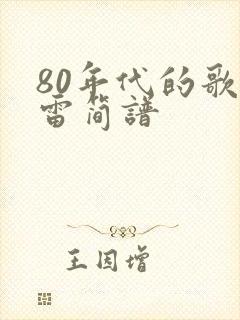 80年代的歌
雷简譜
王因增